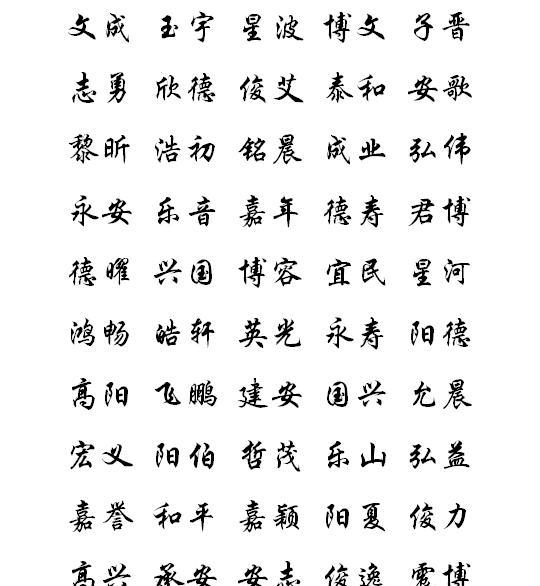 文成 玉宇 星波 博文 子晋
志勇 欣德 俊艾 泰和 安歌
黎昕 浩初 铭晨 成业 弘伟
永安 乐音 嘉年 德寿 君博
德曜 兴国 博容 宜民 星河
鸿畅 皓轩 英光 永寿 阳德
高阳 飞鹏 建安 国兴 允晨
宏义 阳伯 哲茂 乐山 弘益
嘉誉 和平 嘉颖 阳夏 俊力
高兴 承安 安志 俊逸 博